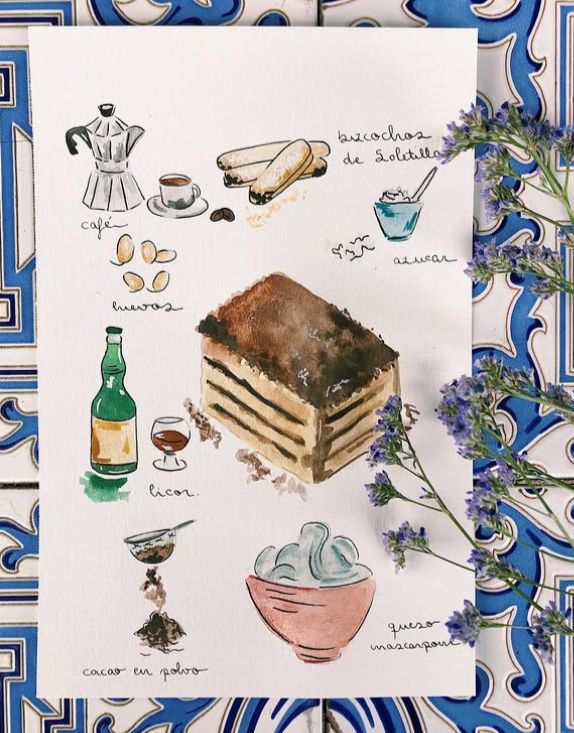 bizcochos
de Soletilla
café
azucar
huevos
licor.
queso
mascarpone
cacao en polvo